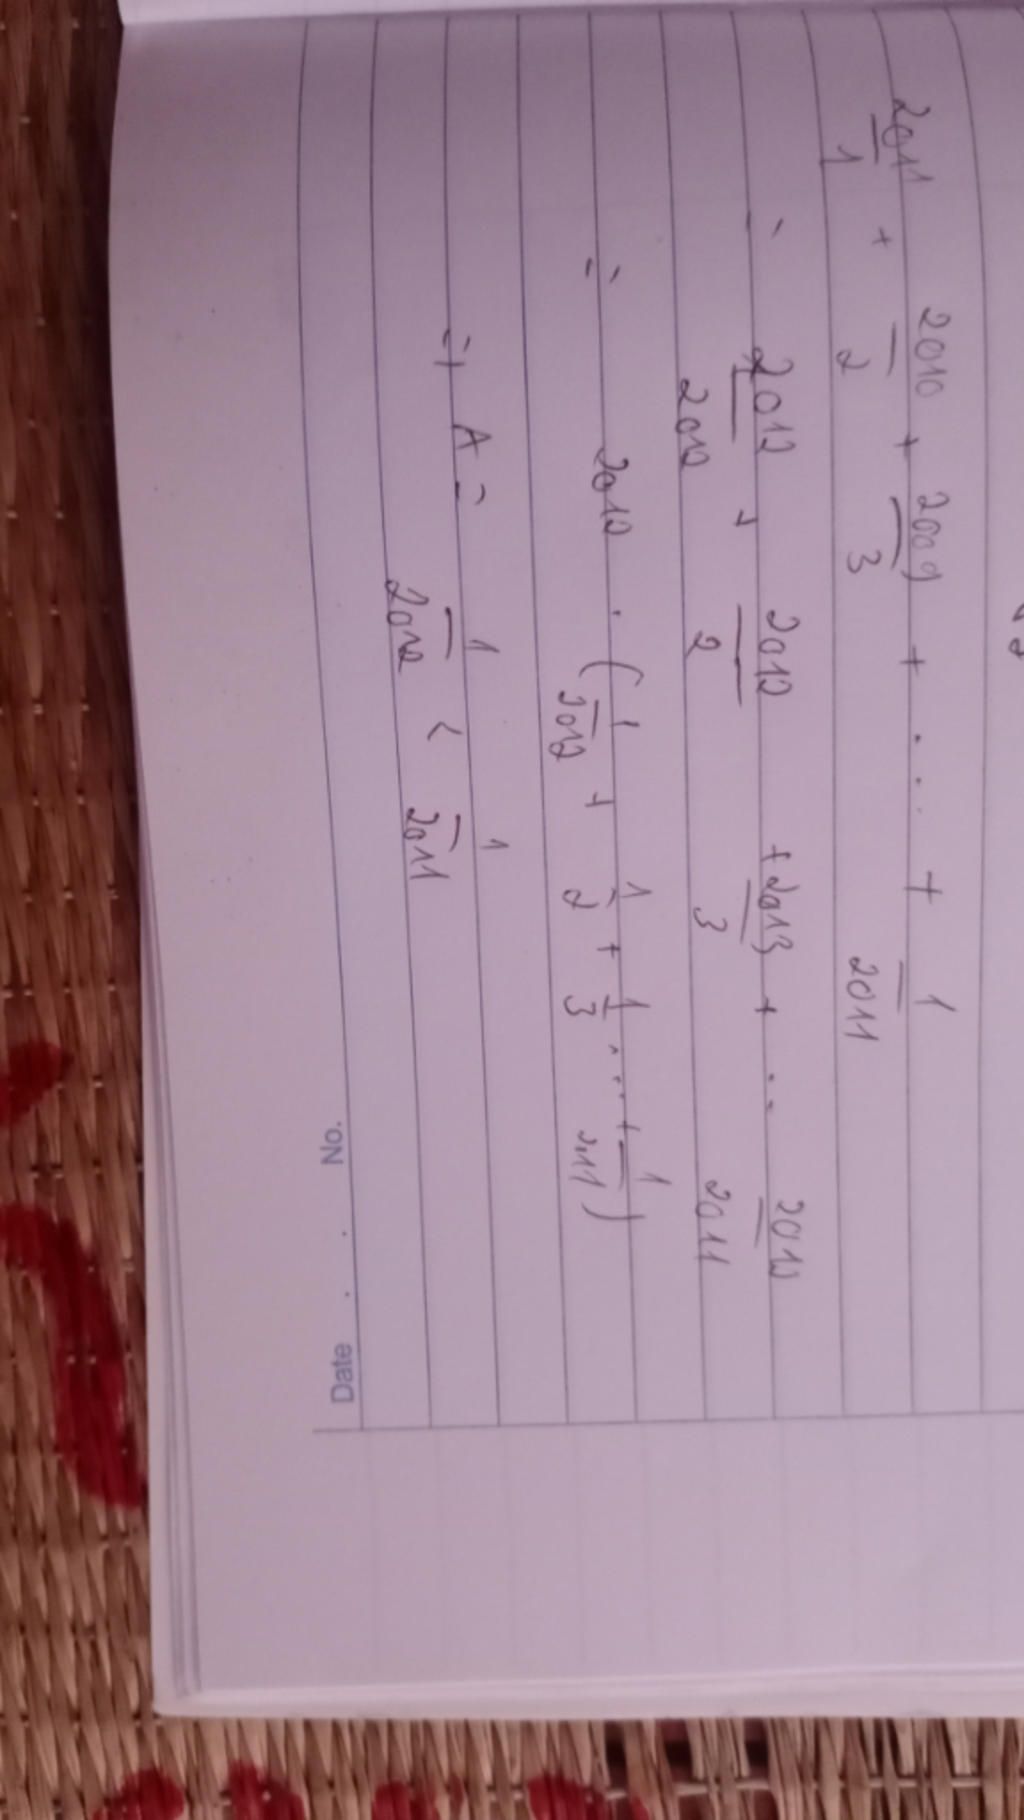 2011/1 + 2010/2 + 2009/3 + .... + 1/2011
= 2012/2012 + 2012/2 + 2013/3 + ... 2012/2011
= 2012 . (1/2012 + 1/2 + 1/3 .... + 1/2011)
=> A = 1/2012 < 1/2011
No.
Date . .